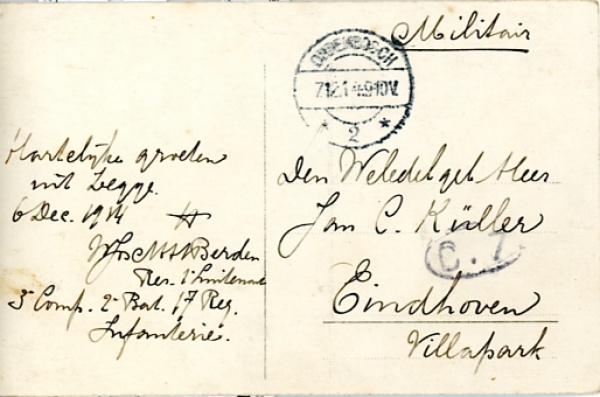 Militair
OUDENBOSCH
7.12.14.9-10V.
* 2 *
Hartelijke groeten
uit Zegge.
6 Dec. 1914
Berden
Res. 1e Luitenant
3e Comp. 2e Bat. 17 Reg.
Infanterie.
Den Weledelgeb Heer
Jan C. Küller
C. 7
Eindhoven
Villapark